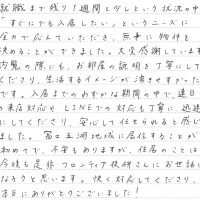 就職まで残り1週間と少しという状況の中
"すぐにでも入居したい"というニーズに
全ので応えていただき、無事に物件を
決めることができました。大変感謝しています
内覧の際にも、お部屋の説明を丁寧にして
くださり、生活するイメージが湧きやすかった
です。入居までのわずかな期間の中で、連日
の来店対応や LINEでの対応も丁寧に、迅速
にしてくださり、安心して任せられると感じ
ました。富士五湖地域に居住することが
初めてで、不安もありますが、住居のことは
今後も是非フロンティア技研さんにお世話に
なろうと思います。快く対応してくださり、
本当にありがとうございました!